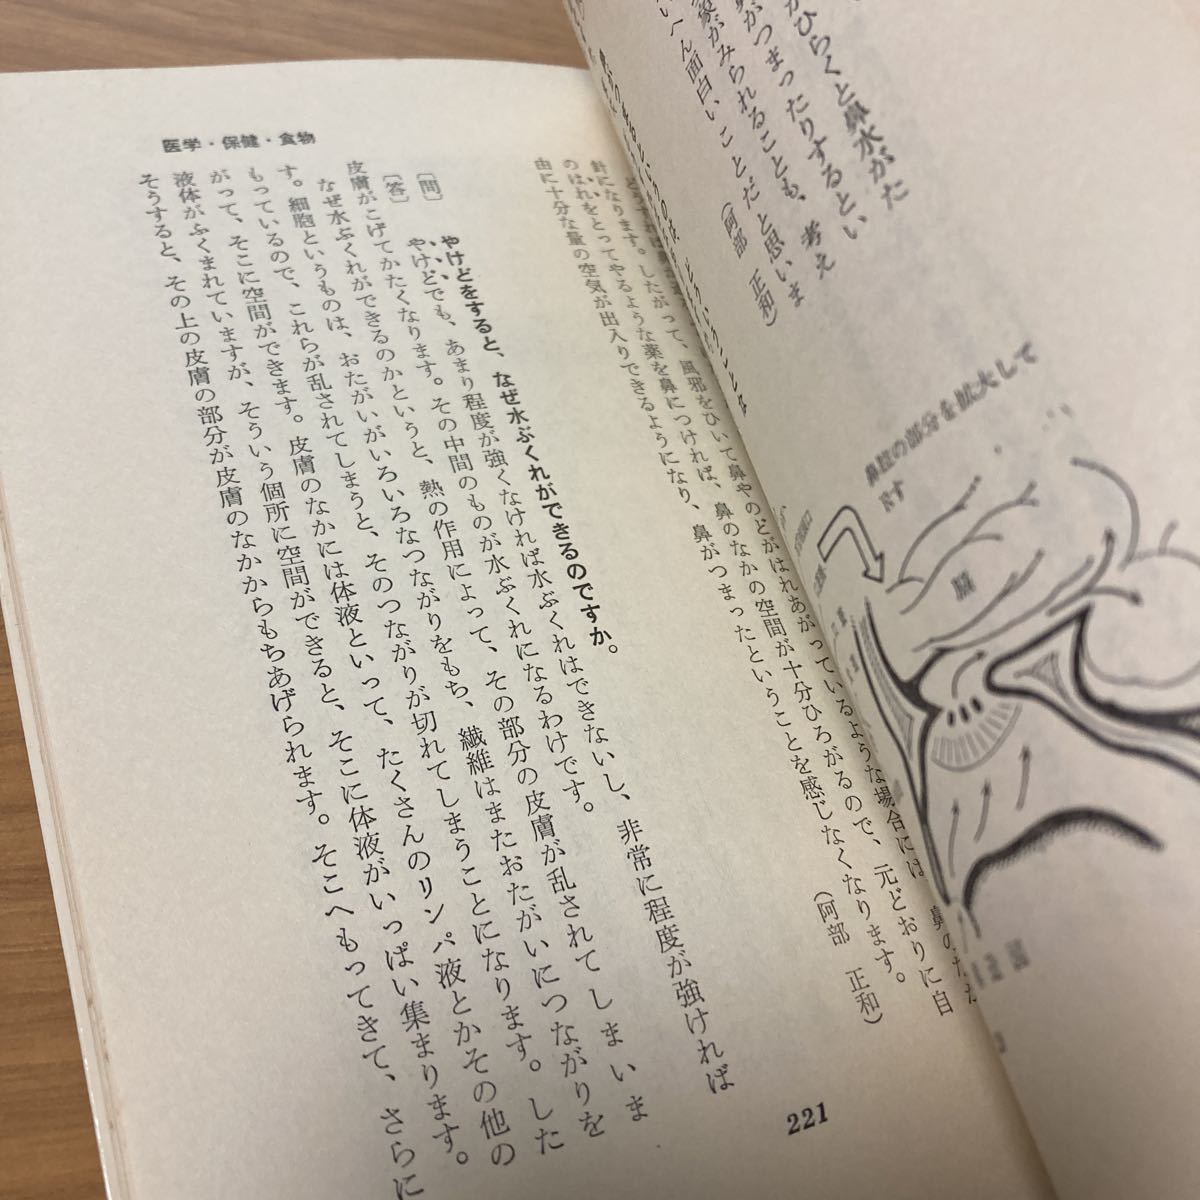 医学・保健・食物
針になります。したがって、風邪をひいて鼻やのどがはれあがっているような場合には、鼻のなか
のはれをとってやるような薬を鼻につければ、鼻のなかの空間が十分ひろがるので、元どおりに自
由に十分な量の空気が出入りできるようになり、鼻がつまったということを感じなくなります。
（阿部　正和）
〔問〕　やけどをすると、なぜ水ぶくれができるのですか。
〔答〕　やけどでも、あまり程度が強くなければ水ぶくれはできないし、非常に程度が強ければ
皮膚がこげてかたくなります。その中間のものが水ぶくれになるわけです。
なぜ水ぶくれができるのかというと、熱の作用によって、その部分の皮膚が乱されてしまいま
す。細胞というものは、おたがいがいろいろなつながりをもち、繊維はまたおたがいにつながりを
もっているので、これらが乱されてしまうと、そのつながりが切れてしまうことになります。した
がって、そこに空間ができます。皮膚のなかには体液といって、たくさんのリンパ液とかその他の
液体がふくまれていますが、そういう個所に空間ができると、そこに体液がいっぱい集まります。
そうすると、その上の皮膚の部分が皮膚のなかからもちあげられます。そこへもってきて、さらに
221
がひらくと鼻水がた
がつまったりするとい
象がみられることも、考え
いへん面白いことだと思いま
（阿部　正和）
鼻腔の部分を拡大して
脳